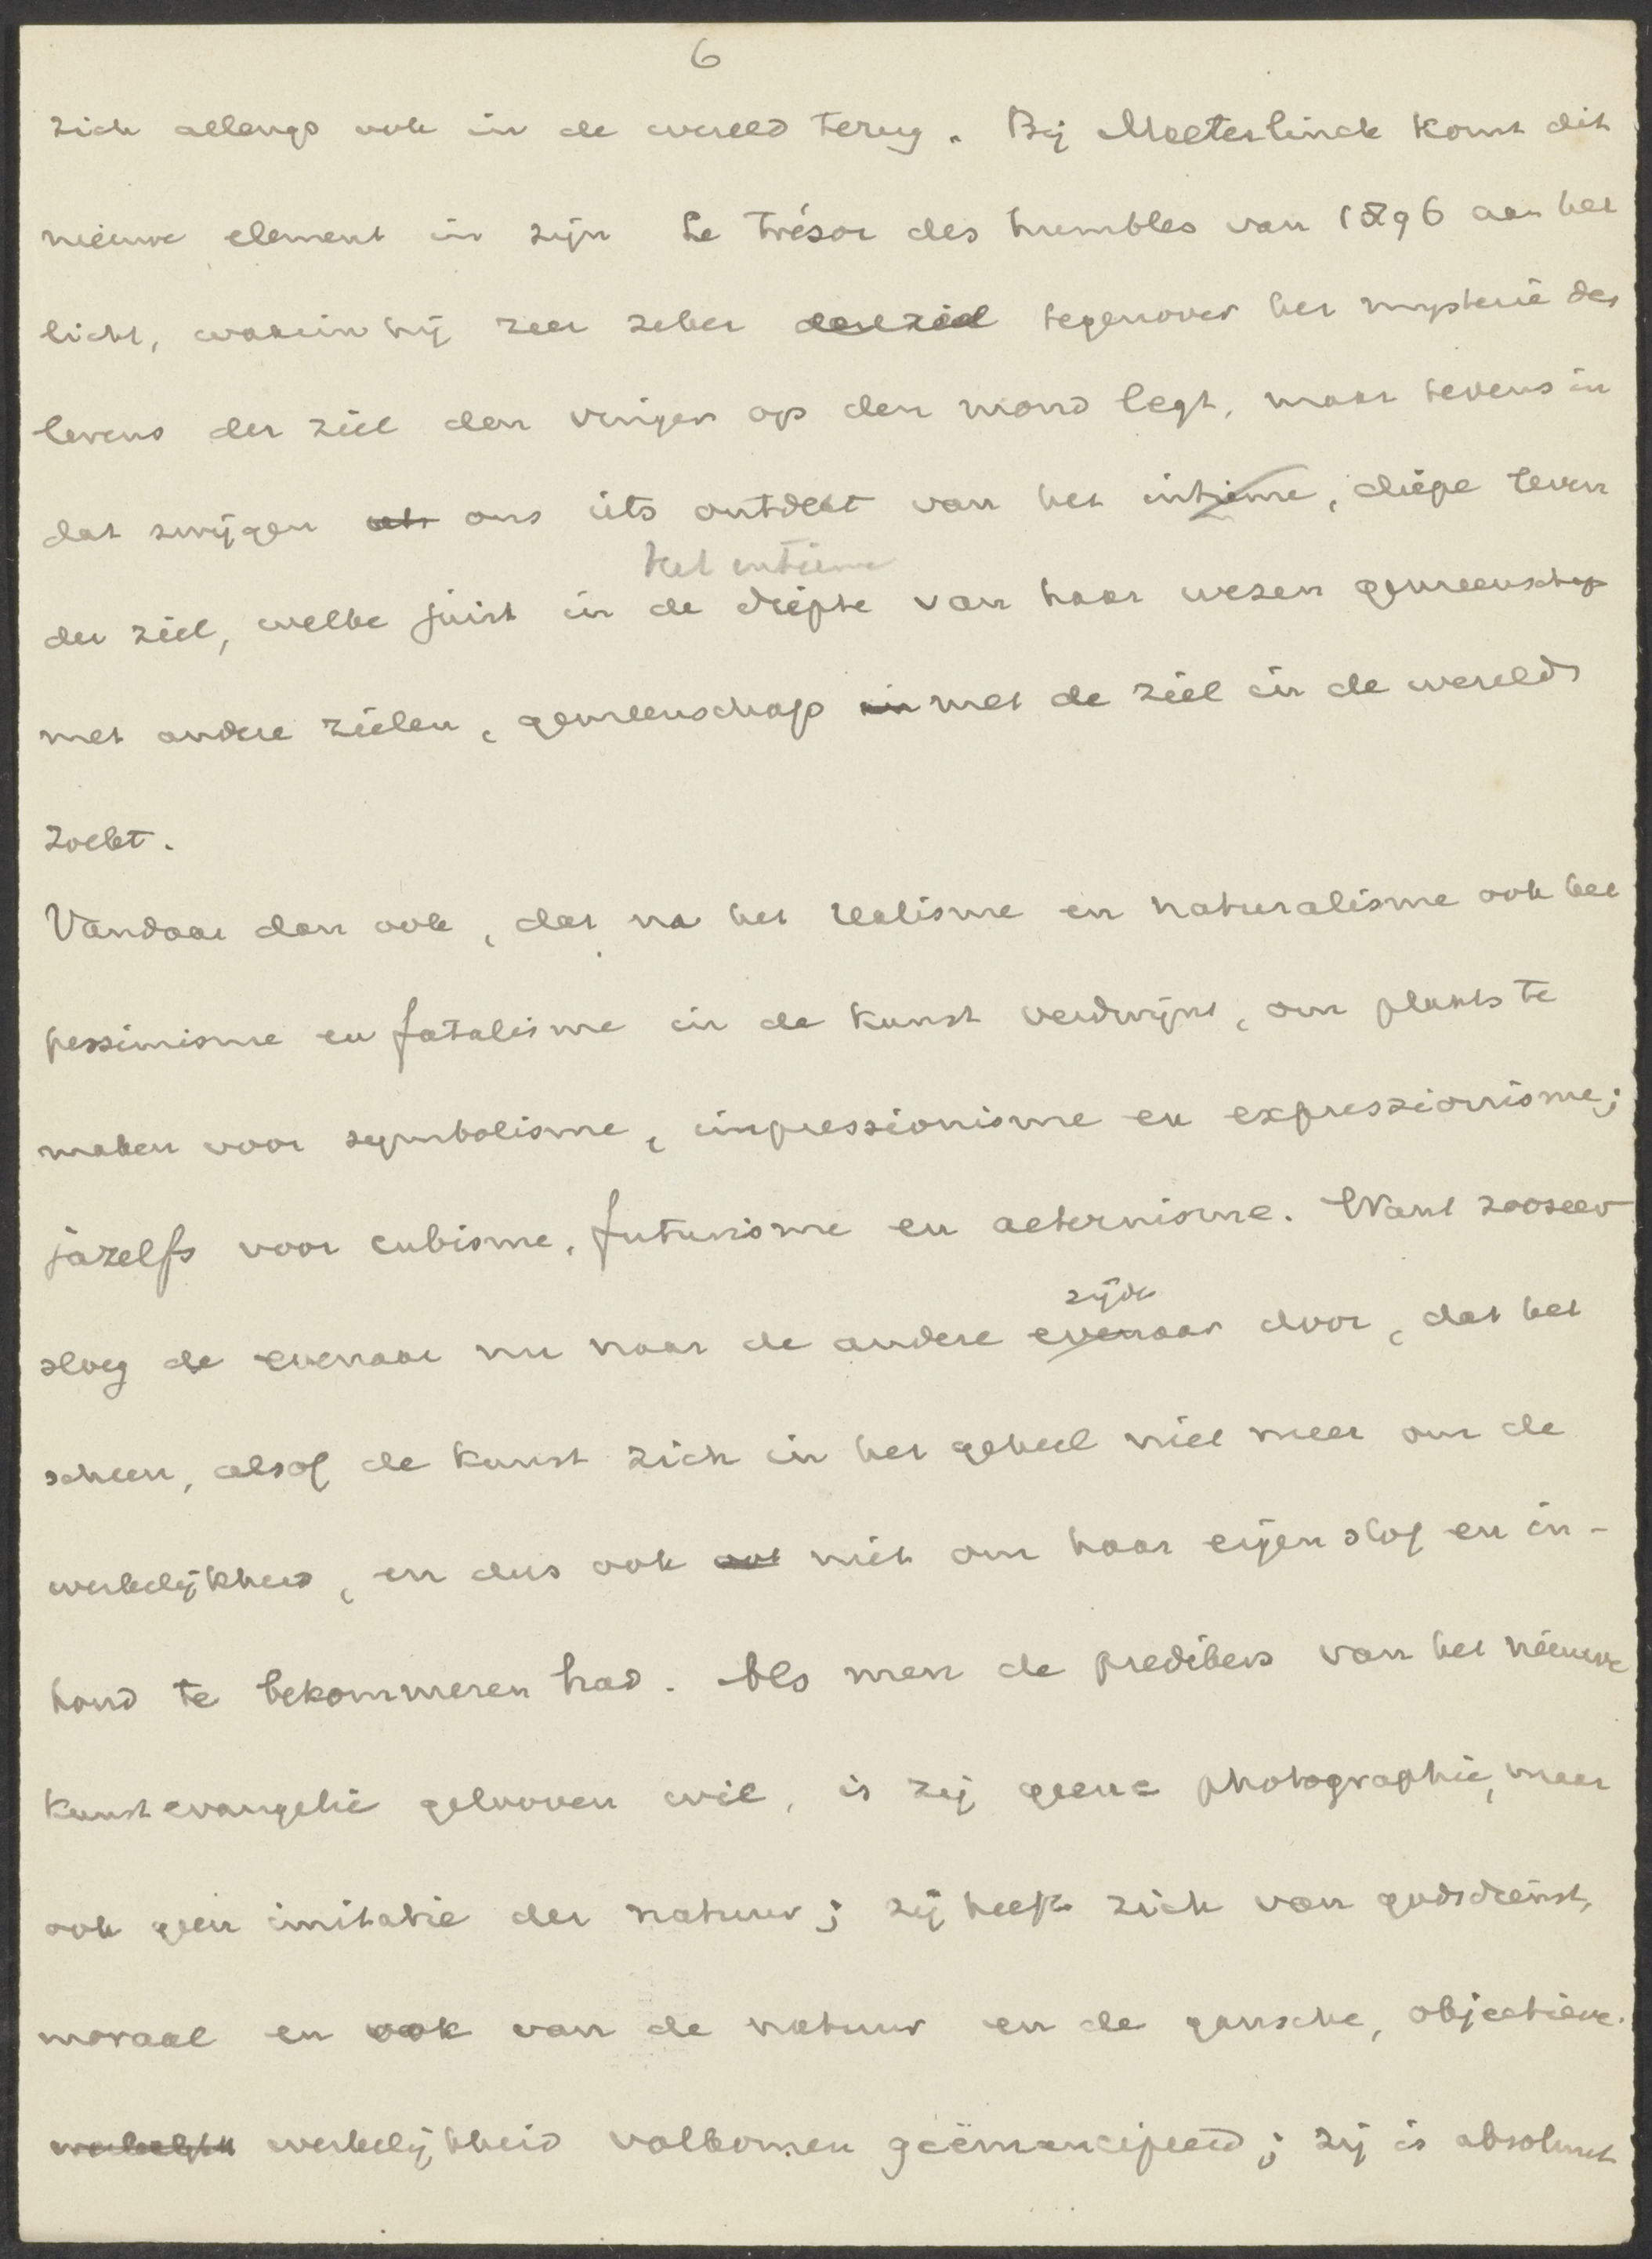 6
zich allengs ook in de wereld terug. Bij Maeterlinck komt dit
nieuwe element in zijn Le Trésor des humbles van 1896 aan het
licht, waarin hij zeer zeker tegenover het mysterie des
levens der ziel den vinger op den mond legt, maar tevens in
dat zwijgen ons iets ontdekt van het intieme, diepe leven
het intieme
der ziel, welke juist in de diepte van haar wezen gemeenschap
met andere zielen, gemeenschap in met de ziel in de wereld
zoekt.
Vandaar dan ook, dat na het realisme en naturalisme ook het
pessimisme en fatalisme in de kunst verdwijnt, om plaats te
maken voor symbolisme, impressionisme en expressionisme;
ja zelfs voor cubisme, futurisme en aeternisme. Want zoozeer
zijde
sloeg de evenaar nu naar de andere evenaar door, dat het
scheen, alsof de kunst zich in het geheel niet meer om de
werkelijkheid, en dus ook niet om haar eigen stof en in-
houd te bekommeren had. Als men de predikers van het nieuwe
kunstevangelie gelooven wil, is zij geene photographie, maar
ook geen imitatie der natuur; zij heeft zich van godsdienst,
moraal en ook van de natuur en de gansche, objectieve
werkelijkheid volkomen geëmancipeerd; zij is absoluut